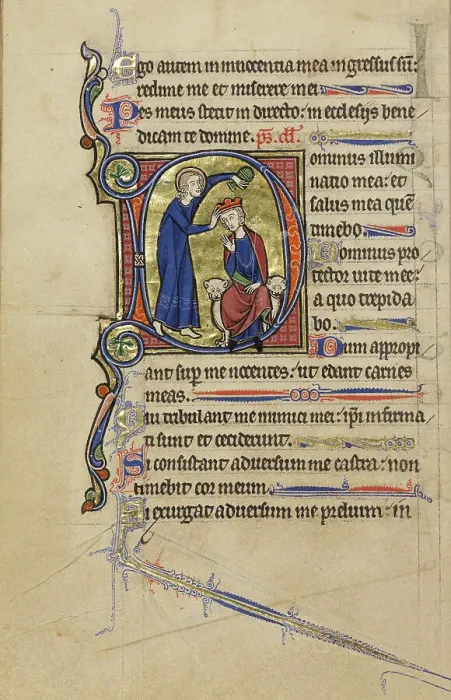 Ego autem in innocentia mea ingressus sũ:
redime me et miserere mei.
Pes meus stetit in directo: in ecclesijs bene
dicam te domine. p̃s. dd̃.
Dominus illumi
natio mea: et
salus mea quẽ
timebo.
Dominus pro
tector uite mee:
a quo trepida
bo.
Dum appropi
ant sup̱ me nocentes: ut edant carnes
meas.
Qui tribulant me inimici mei: ip̃i infirma
ti sunt et ceciderunt.
Si consistant aduersum me castra: non
timebit cor meum.
Si exurgat aduersum me prelium: in